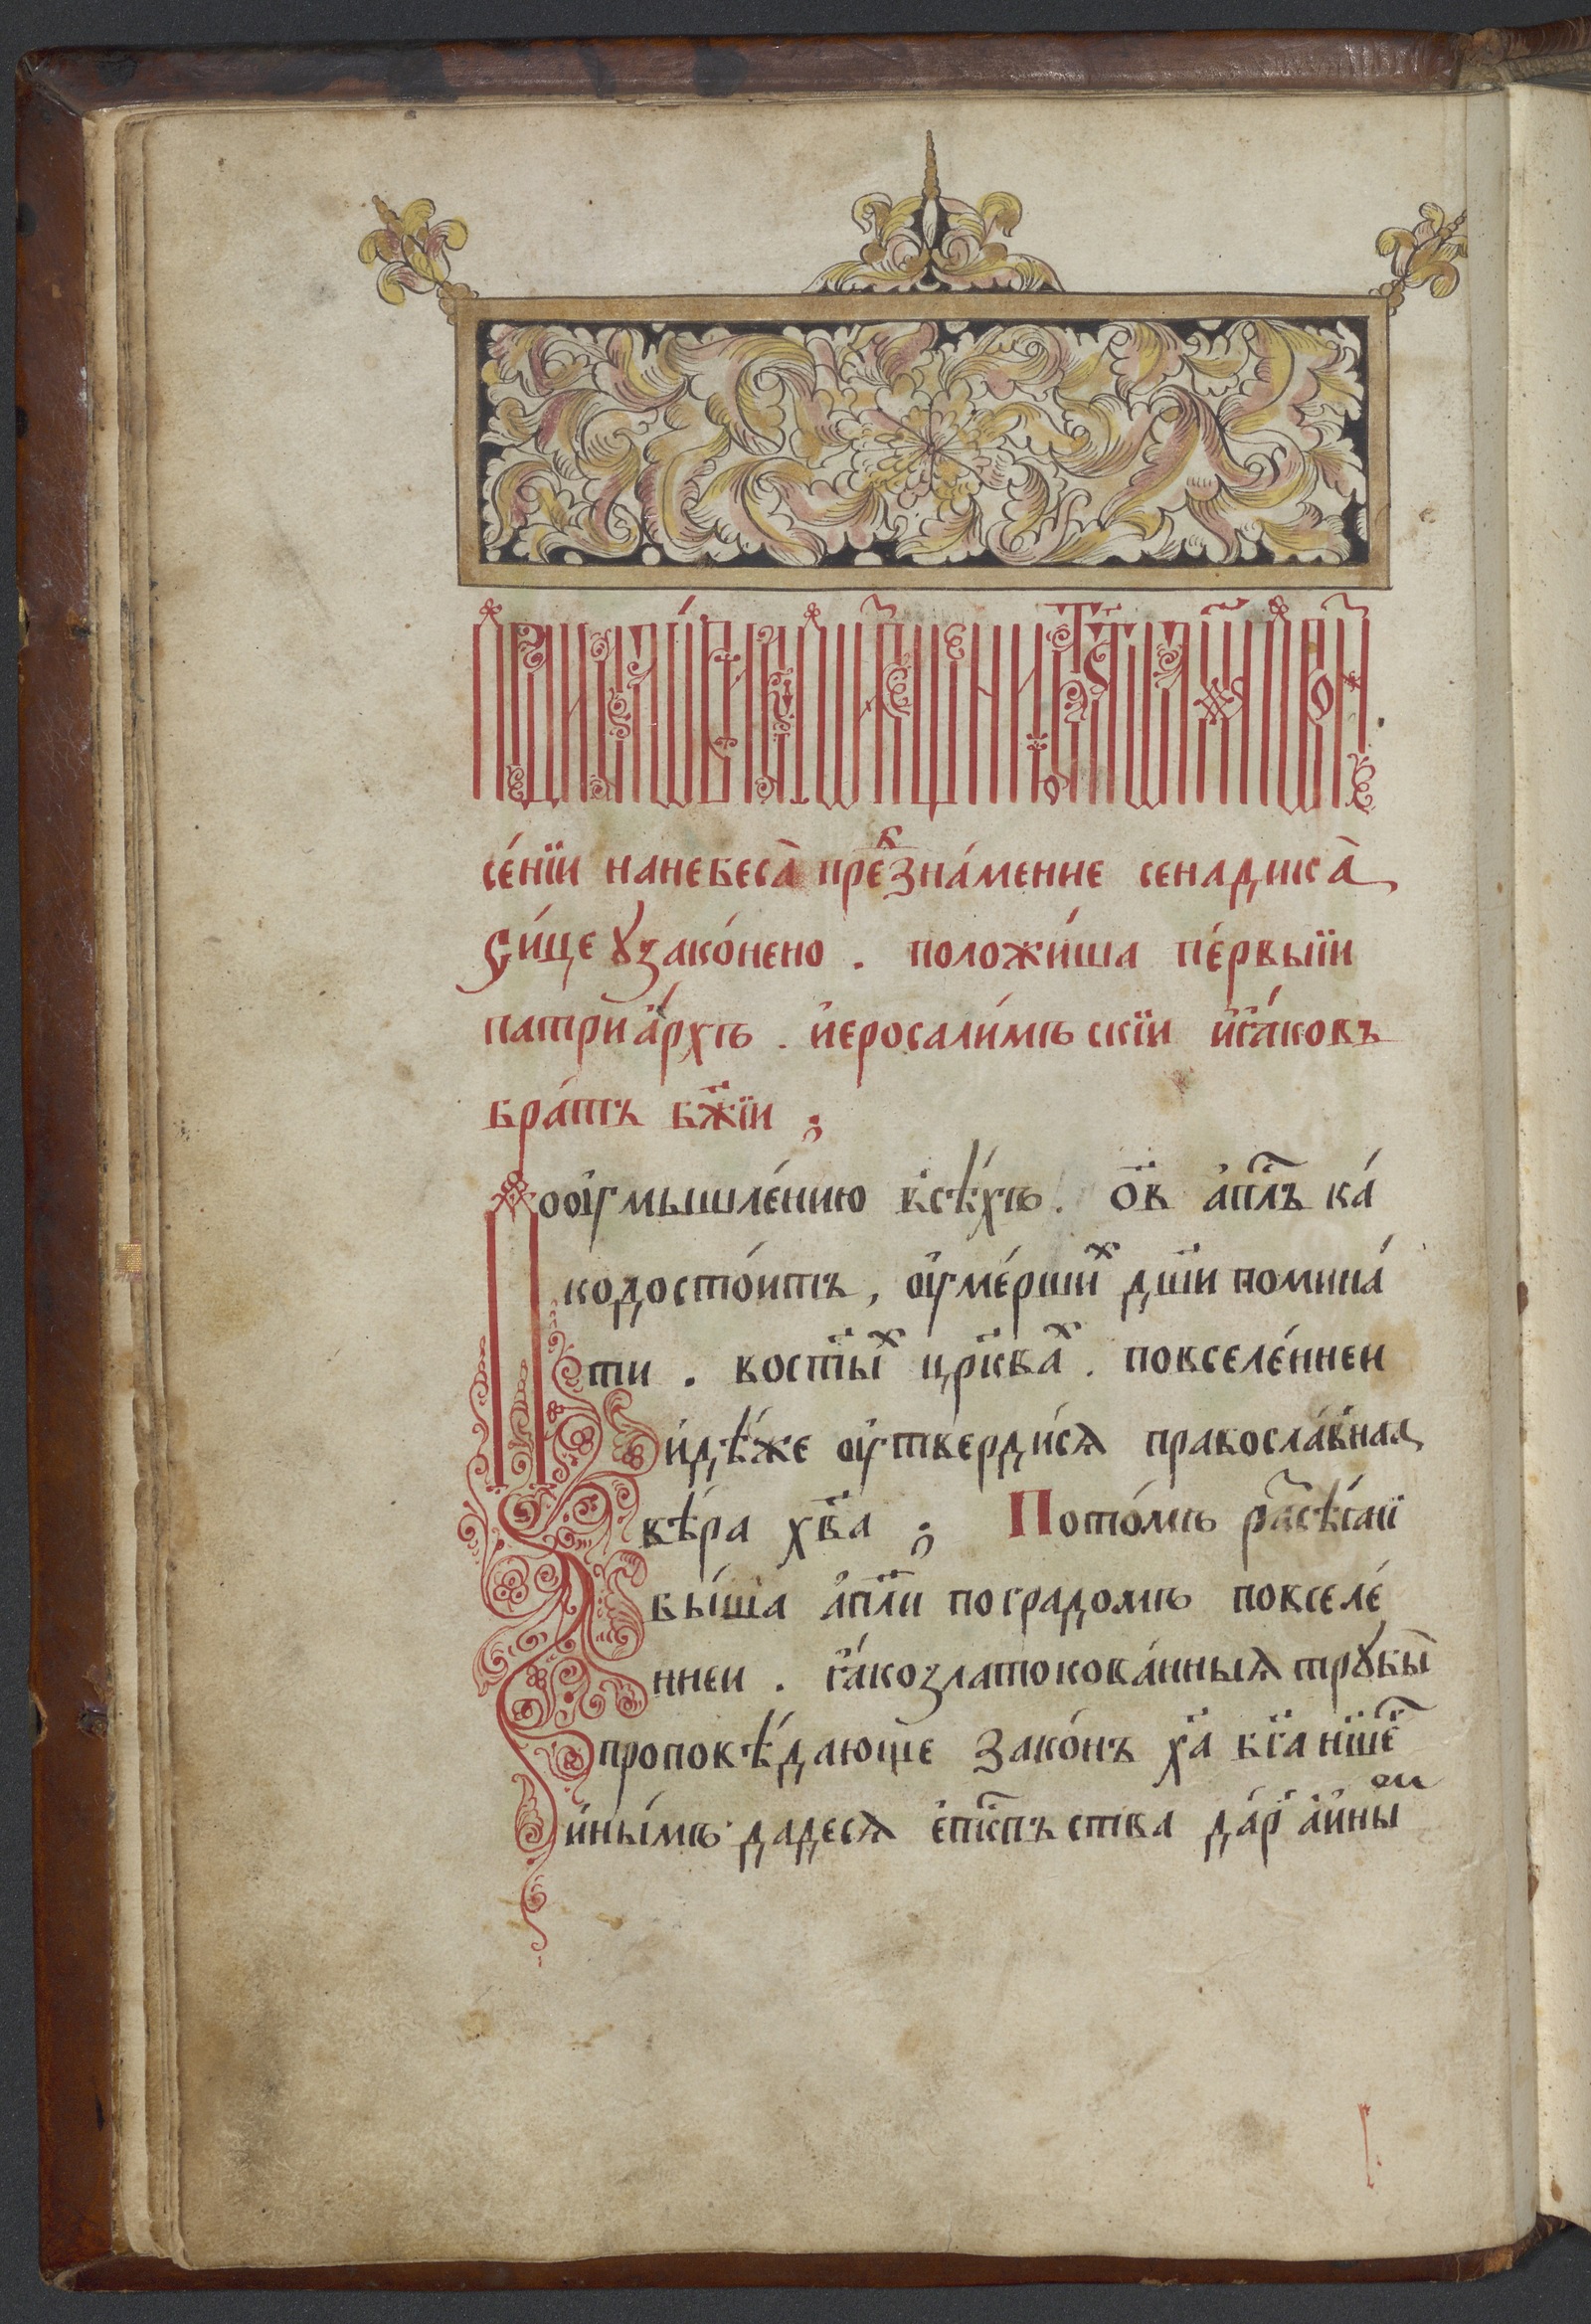 се́нїи нанебеса̀ пре́ⷣзна́менне сенадика̀
Си́це ꙋзако́нено . положи́ша пе́рвыїи
патриа́рхъ . і҆еросали́мъскїи и҆ꙗ́ковъ
бра́тъ бж҃їи ;
Поꙋ҆мышле́нию всѣ́хъ . о҃в а҆пⷭ҇лъ ка́
кодосто́итъ , оу҆ме́ршиⷯ дш҃и помина́
ти . востⷯы҃ црⷦ҇ваⷯ . повселе́ннеи
и҆дѣ́же оу҆тверди́сѧ правосла́внаѧ
вѣ́ра хв҃а ; Пото́мъ раⷥсѣ́ѧнї
бы́ша а҆пⷭ҇ли поградомъ повселе́
ннеи . ꙗ҆́козлатокова́нныѧ трꙋбы̀
проповѣ́дающе зако́нъ хⷭ҇а бг҃а нш҃еⷢ
и҆ны́мъ дадесѧ е҆пⷭ҇кпъства да́р а҆и҆ныⷨ